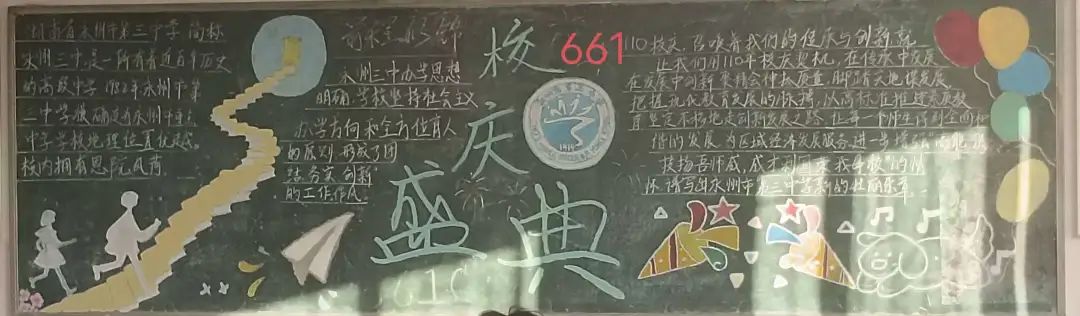 湖南省永州市第三中学简称
永州三中,是一所有着近百年历史
的高级中学 1982年永州市第
三中学被确定为永州市重点
中学学校地理位置优越。
校内拥有思院风荷
永州三中办学思想
明确,学校坚持社会主义
办学方向和全方位育人
的原则 形成了团
结 务实 创新
的工作作风
校
庆
盛
典
661
1919
110校庆,召唤着我们的使命与创新
让我们用110年校庆契机,在传承中发展
在发展中创新
以高标准推进素质教
育 坚定不移地走创新发展之路,让每一个师生得到全面和
谐的发展 为区域经济发展服务进一步增强
扬吾师威,成才到回来 我母校"的情
怀 谱写出永州市第三中学新的壮丽乐章。